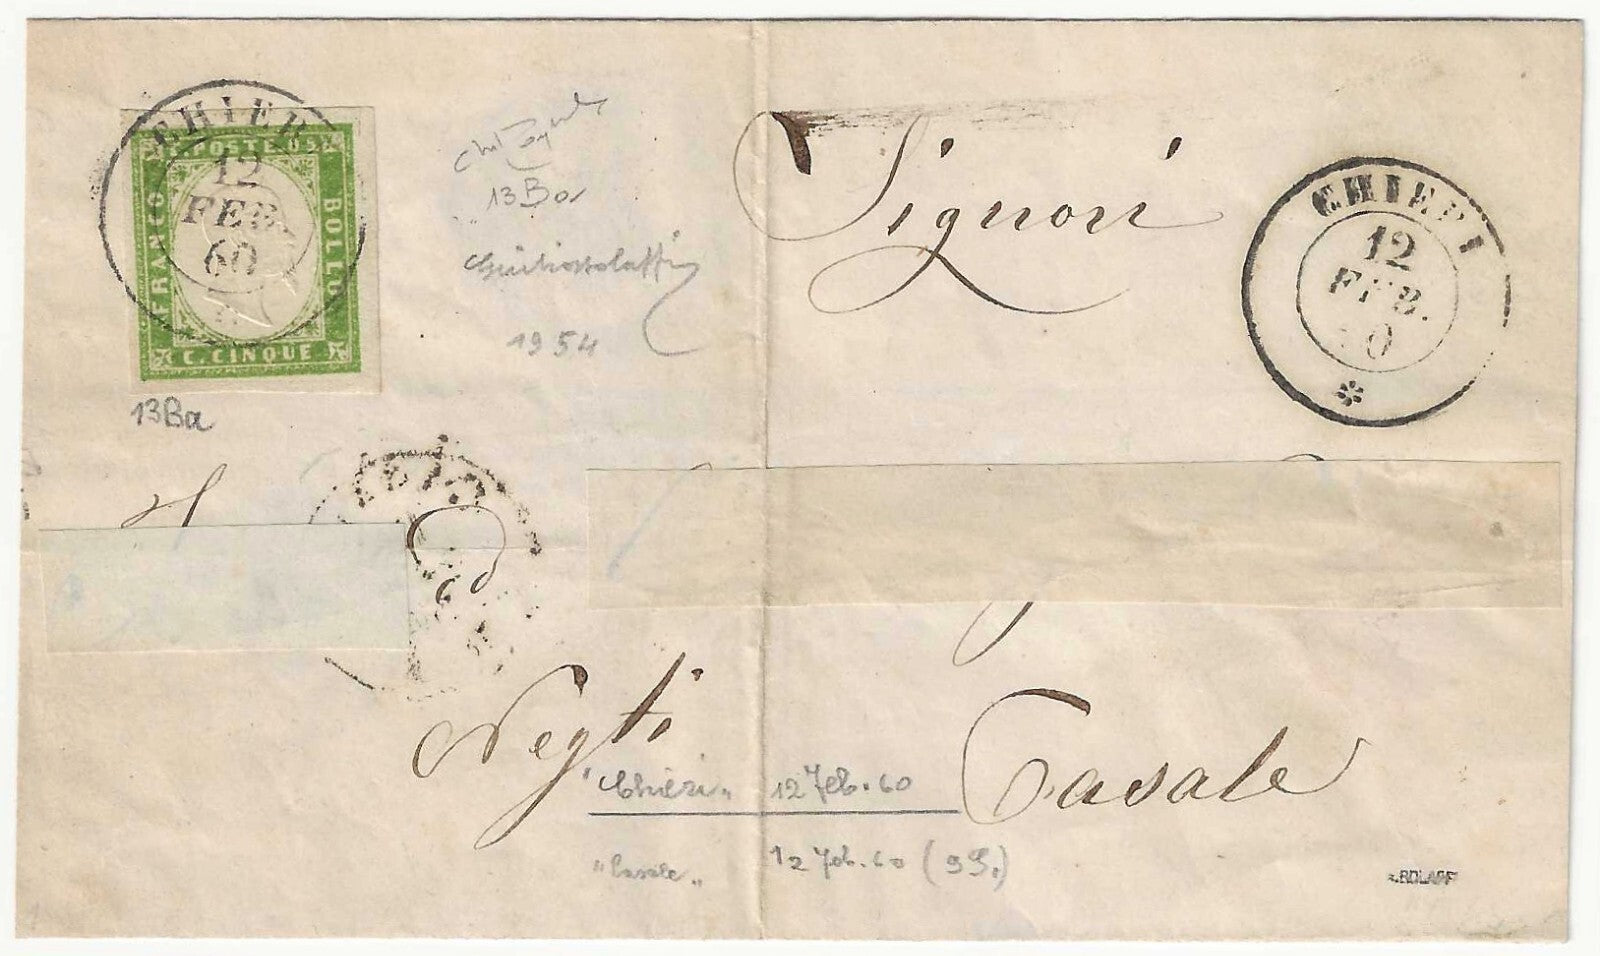 CHIERI
12
FEB
60
C. POSTE 05
FRANCO
BOLLO
C. CINQUE
13Ba
13Ba
1954
Signori
CHIERI
12
FEB.
60
Negti
Casale
"Chieri" 12 Feb. 60
"Casale" 12 Feb. 60 (9S.)